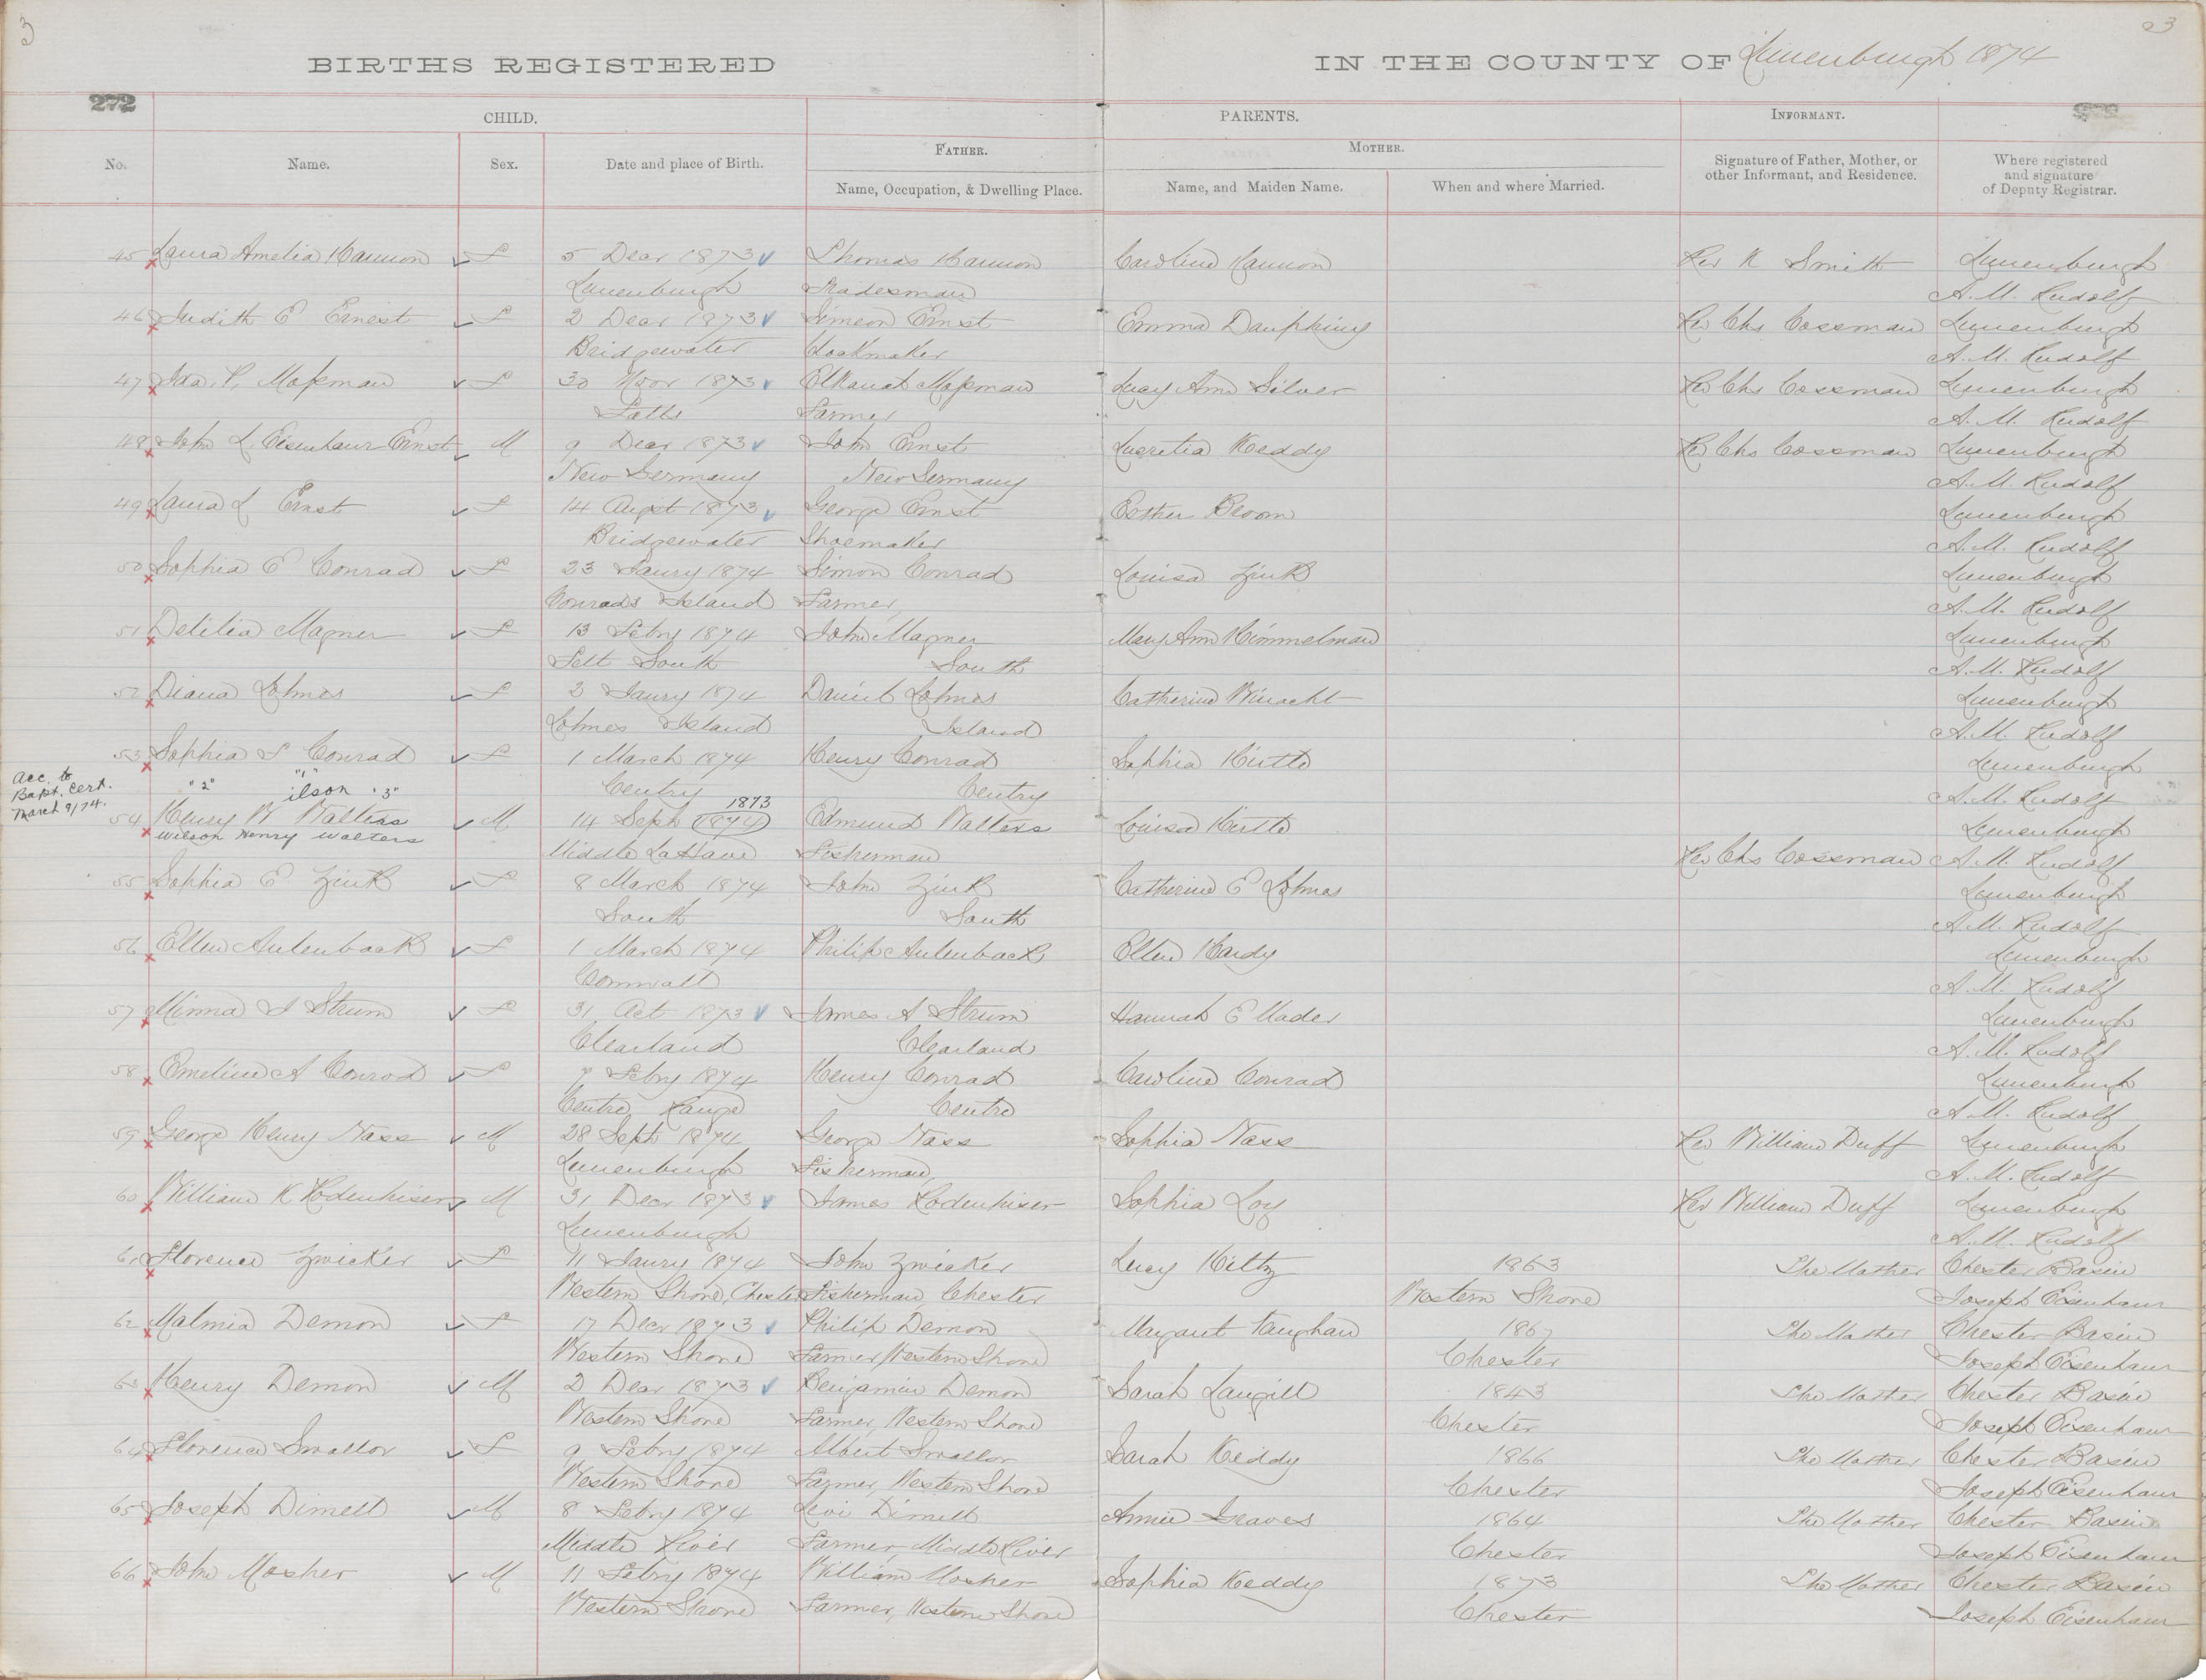 3
23
BIRTHS REGISTERED IN THE COUNTY OF Lunenburgh 1874
272
CHILD. PARENTS. INFORMANT.
FATHER. MOTHER.
No. Name. Sex. Date and place of Birth. Name, Occupation, & Dwelling Place. Name, and Maiden Name. When and where Married. Signature of Father, Mother, or other Informant, and Residence. Where registered and signature of Deputy Registrar.
45 Laura Amelia Hannon F 5 Decr 1873 Thomas Hannon Caroline Hannon Rev R Smith Lunenburgh
Lunenburgh Tradesman A. M. Rudolf
46 Judith E Ernest F 2 Decr 1873 Simeon Ernst Emma Dauphiny Rev Chs Cossman Lunenburgh
Bridgewater Clockmaker A. M. Rudolf
47 Ida. P. Mossman F 30 Novr 1873 Elkanah Mossman Lucy Ann Silver Rev Chs Cossman Lunenburgh
Falls Farmer A. M. Rudolf
48 John L. Eisenhaur Ernst M 9 Decr 1873 John Ernst Lucretia Keddy Rev Chs Cossman Lunenburgh
New Germany New Germany A. M. Rudolf
49 Laura L Ernst F 14 Augst 1873 George Ernst Esther Broom Lunenburgh
Bridgewater Shoemaker A. M. Rudolf
50 Sophia E Conrad F 23 Jaury 1874 Simon Conrad Louisa Zink Lunenburgh
Conrads Island Farmer, A. M. Rudolf
51 Delilia Magner F 13 Febry 1874 John Magner Mary Ann Himmelman Lunenburgh
Sett South South A. M. Rudolf
52 Diana Lohnes F 2 Jaury 1874 Daniel Lohnes Catherine Winacht Lunenburgh
Lohnes Island Island A. M. Rudolf
53 Sophia S Conrad F 1 March 1874 Henry Conrad Sophia Hirtle Lunenburgh
Centry Centry A. M. Rudolf
Acc. to Bapt. Cert. March 9/74.
"2" "1" ilson "3"
54 Henry W Walters M 14 Sept 1874 1873 Edmund Walters Louisa Hirtle Lunenburgh
Wilson Henry Walters
Middle LaHave Fisherman Rev Chs Cossman A. M. Rudolf
55 Sophia E Zink F 8 March 1874 John Zink Catherine E Lohnes Lunenburgh
South South A. M. Rudolf
56 Ellen Aulenback F 1 March 1874 Philip Aulenback Ellen Hardy Lunenburgh
Cornwall A. M. Rudolf
57 Minna S Strum F 31 Oct 1873 James A Strum Hannah E Mader Lunenburgh
Clearland Clearland A. M. Rudolf
58 Emeline A Conrod F 7 Febry 1874 Henry Conrad Caroline Conrad Lunenburgh
Centre Range Centre A. M. Rudolf
59 George Henry Nass M 28 Sept 1874 George Nass Sophia Nass Rev William Duff Lunenburgh
Lunenburgh Fisherman, A. M. Rudolf
60 William K Rodenhiser M 31 Decr 1873 James Rodenhiser Sophia Loy Rev William Duff Lunenburgh
Lunenburgh A. M. Rudolf
61 Florence Zwicker F 11 Jaury 1874 John Zwicker Lucy Hiltz 1863 The Mother Chester Basin
Western Shore, Chester Fisherman, Chester Western Shore Joseph Eisenhaur
62 Malmia Demon F 17 Decr 1873 Philip Demon Margaret Vaughan 1867 The Mother Chester Basin
Western Shore Farmer, Western Shore Chester Joseph Eisenhaur
63 Henry Demon M 2 Decr 1873 Benjamin Demon Sarah Langill 1843 The Mother Chester Basin
Western Shore Farmer, Western Shore Chester Joseph Eisenhaur
64 Florence Swallor F 9 Febry 1874 Albert Swallor Sarah Keddy 1866 The Mother Chester Basin
Western Shore Farmer, Western Shore Chester Joseph Eisenhaur
65 Joseph Dimell M 8 Febry 1874 Levi Dimell Annie Graves 1864 The Mother Chester Basin
Middle River Farmer, Middle River Chester Joseph Eisenhaur
66 John Mosher M 11 Febry 1874 William Mosher Sophia Keddy 1873 The Mother Chester Basin
Western Shore Farmer, Western Shore Chester Joseph Eisenhaur